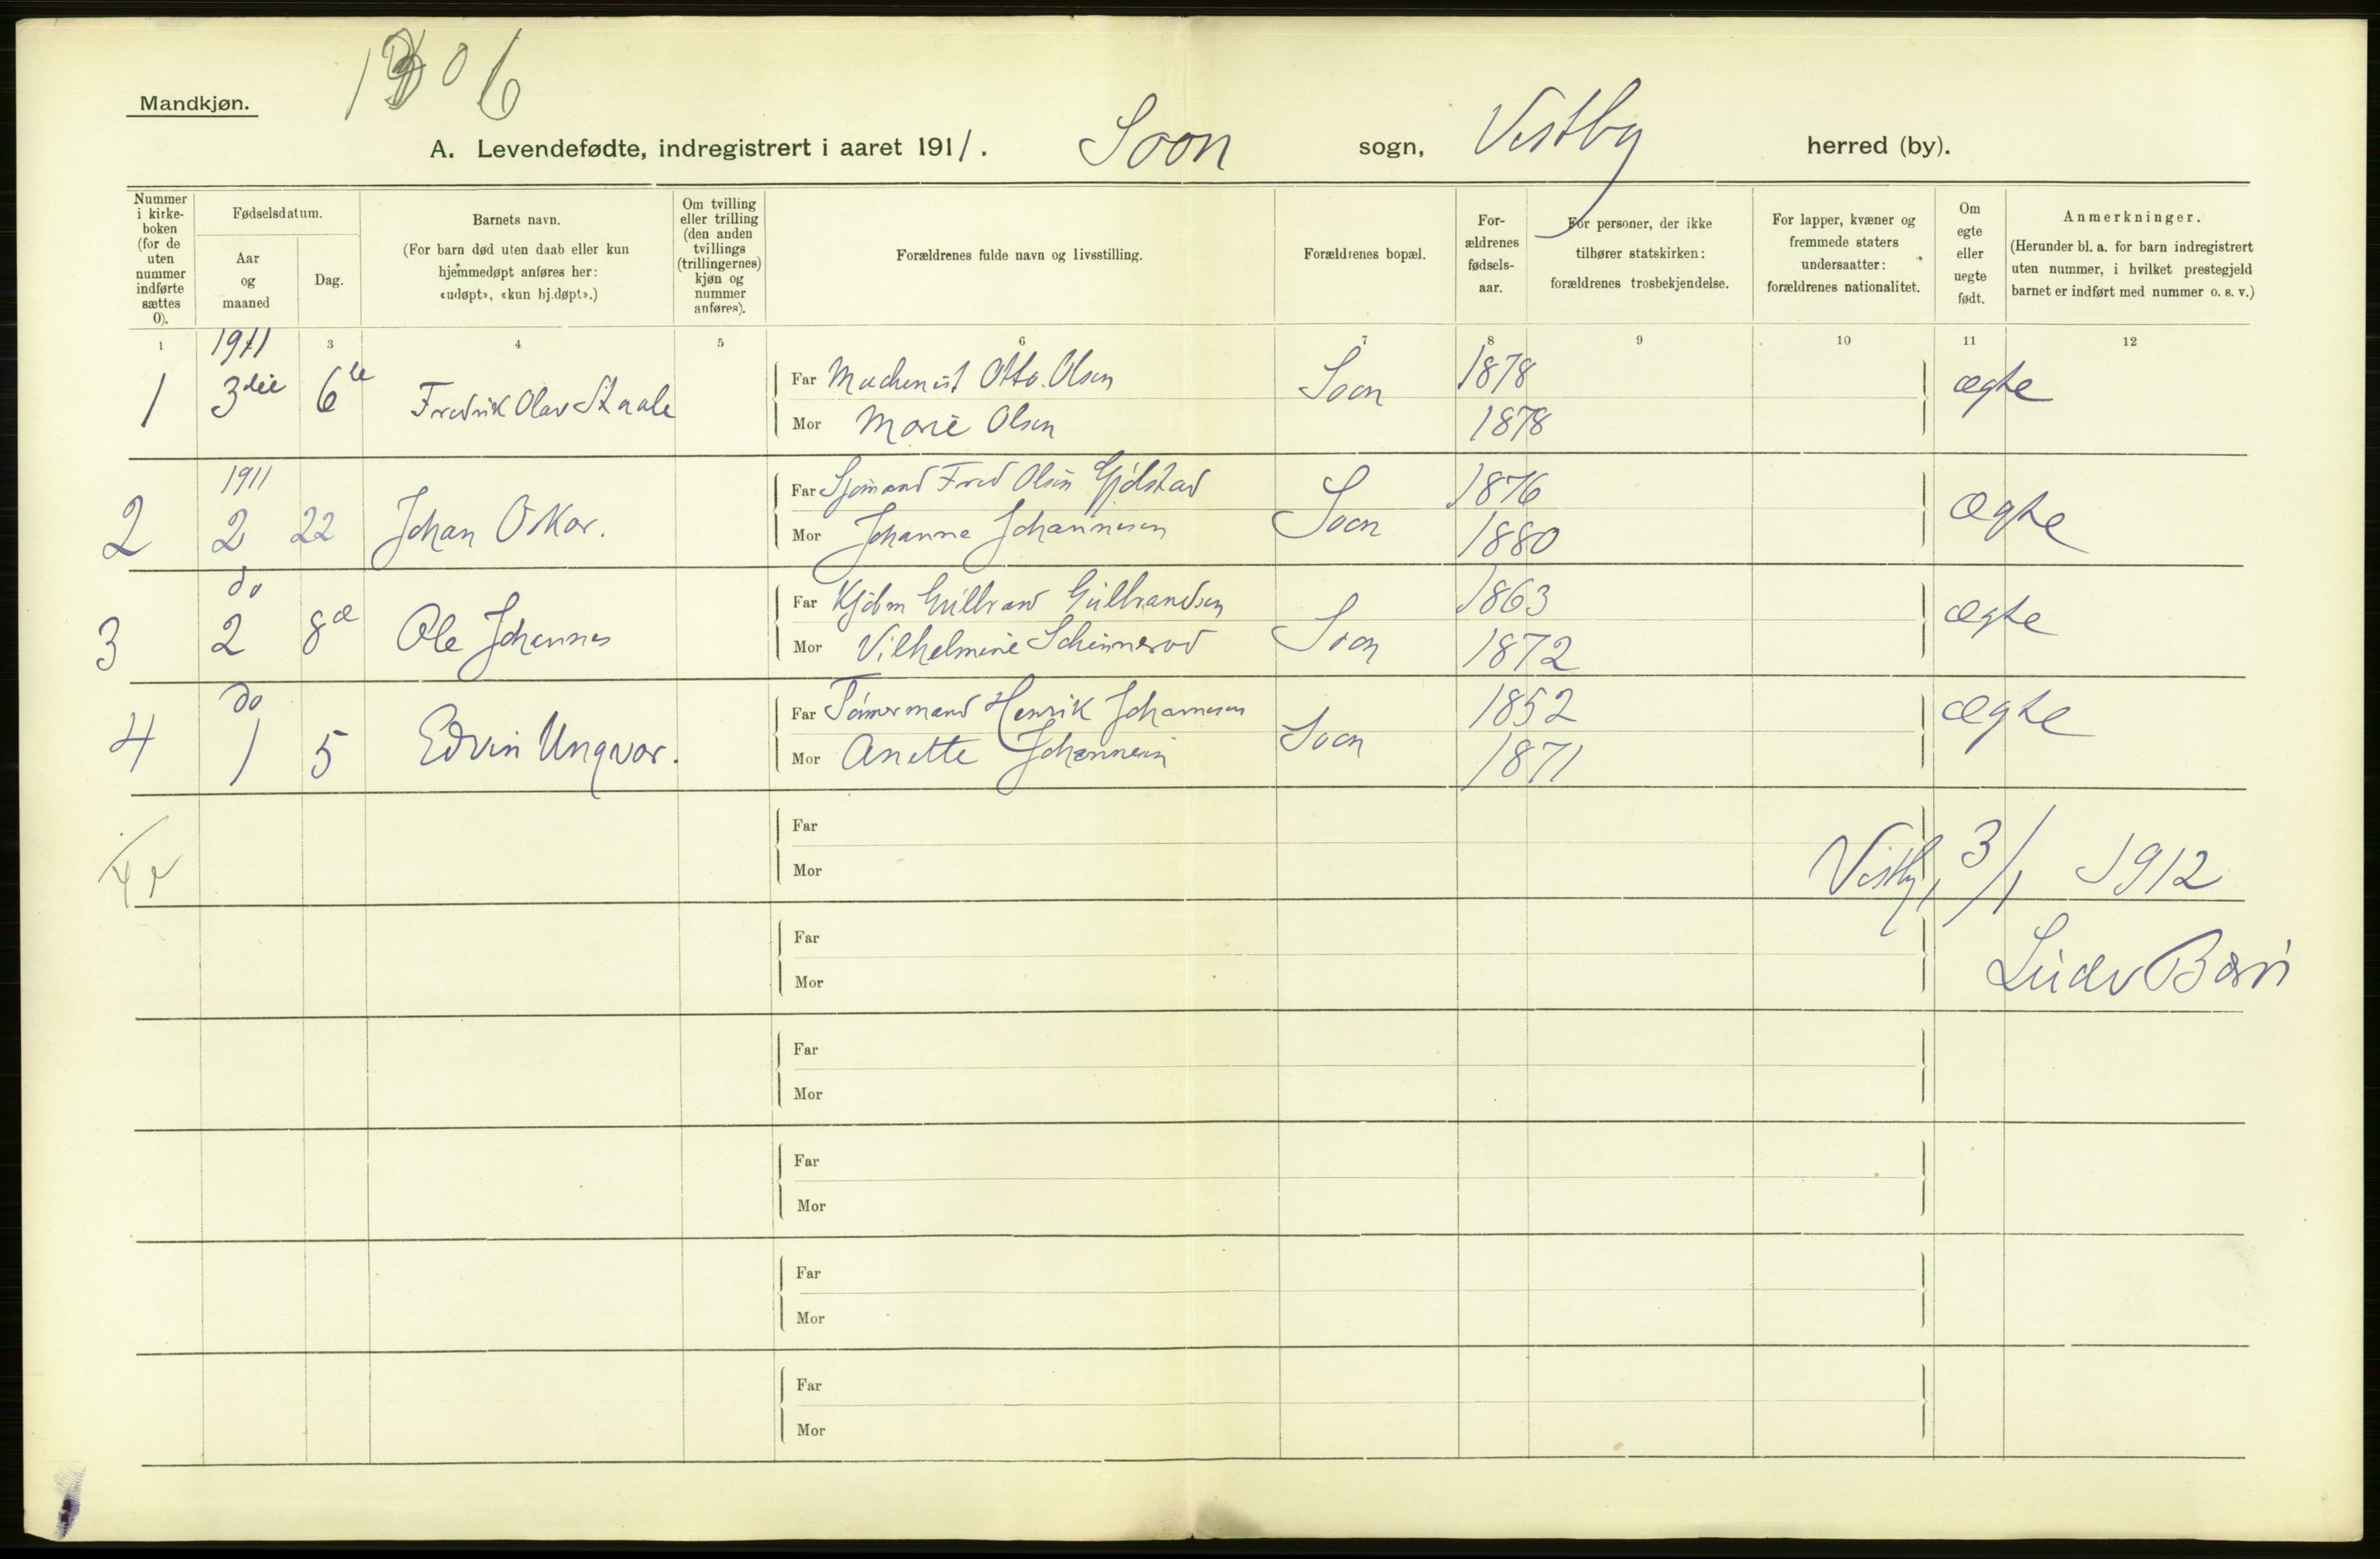 Mandkjøn.
A. Levendefødte, indregistrert i aaret 1911. Soon sogn, Vestby herred (by).
Nummer i kirke-boken (for de uten nummer indførte sættes 0).
Fødselsdatum.
Aar og maaned
Dag.
Barnets navn.
(For barn død uten daab eller kun hjemmedøpt anføres her: «udøpt», «kun hj.døpt».)
Om tvilling eller trilling (den anden tvillings (trillingernes) kjøn og nummer anføres).
Forældrenes fulde navn og livsstilling.
Forældrenes bopæl.
For-ældrenes fødsels-aar.
For personer, der ikke tilhører statskirken: forældrenes trosbekjendelse.
For lapper, kvæner og fremmede staters undersaatter: forældrenes nationalitet.
Om egte eller uegte født.
Anmerkninger.
(Herunder bl. a. for barn indregistrert uten nummer, i hvilket prestegjeld barnet er indført med nummer o. s. v.)
1 3 4 5 6 7 8 9 10 11 12
1911
1 3die 6te Fredrik Olav Staale Far Machinist Otto Olsen Soon 1878 ægte
Mor Marie Olsen 1878
1911
2 2 22 Johan Oskar. Far Sjømand Fred Olsen Gjølstad Soon 1876 ægte
Mor Johanne Johannesen 1880
do
3 2 8de Ole Johannes Far Kjøbm Gulbrand Gulbrandsen Soon 1863 ægte
Mor Vilhelmine Schinnerød 1872
do
4 1 5 Edvin Ungvar. Far Tømmermand Henrik Johannesen Soon 1852 ægte
Mor Anette Johannesen 1871
Far
Mor
Vestby, 3/1 1912
Far
Mor
Far
Mor
Far
Mor
Far
Mor
Far
Mor